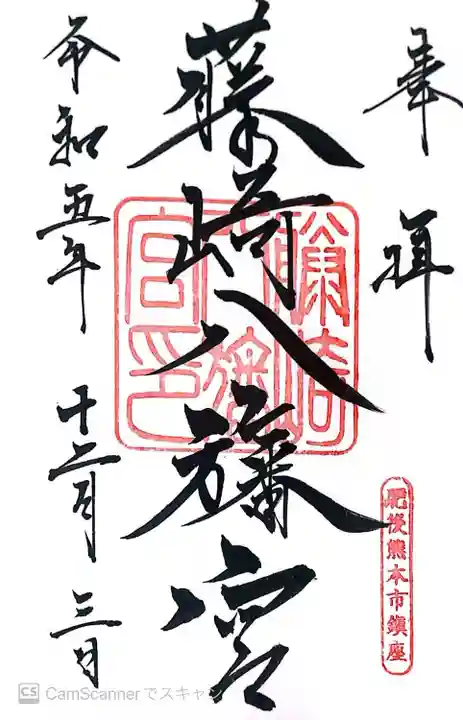 奉拝
藤崎八旛宮
藤崎八旛宮印
肥後熊本市鎮座
令和五年 十二月 三日
CS CamScannerでスキャン